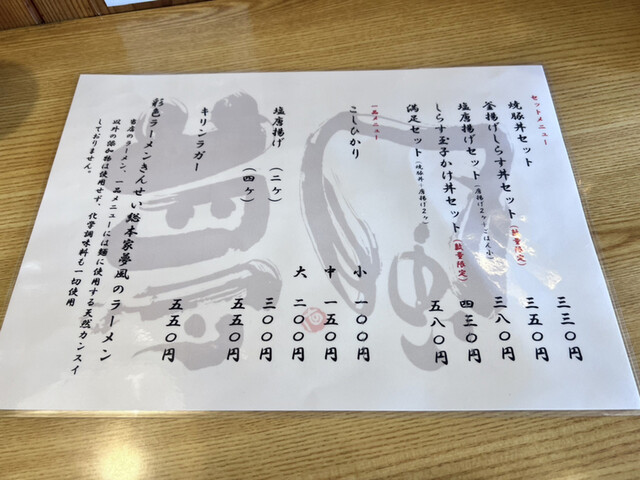 セットメニュー
焼豚丼セット 三三〇円
釜揚げしらす丼セット(数量限定) 三五〇円
塩唐揚げセット(唐揚げ2ヶ・ごはん小) 三八〇円
しらす玉子かけ丼セット(数量限定) 四三〇円
満足セット(焼豚丼・唐揚げ2ヶ) 五八〇円
一品メニュー
こしひかり 小 一〇〇円
中 一五〇円
大 二〇〇円
塩唐揚げ (二ヶ) 三〇〇円
(四ヶ) 五五〇円
キリンラガー 五五〇円
彩色ラーメンきんせい総本家夢風のラーメン
当店のラーメン、一品メニューには麺に使用する天然カンスイ
以外の添加物は使用せず、化学調味料も一切使用
しておりません。